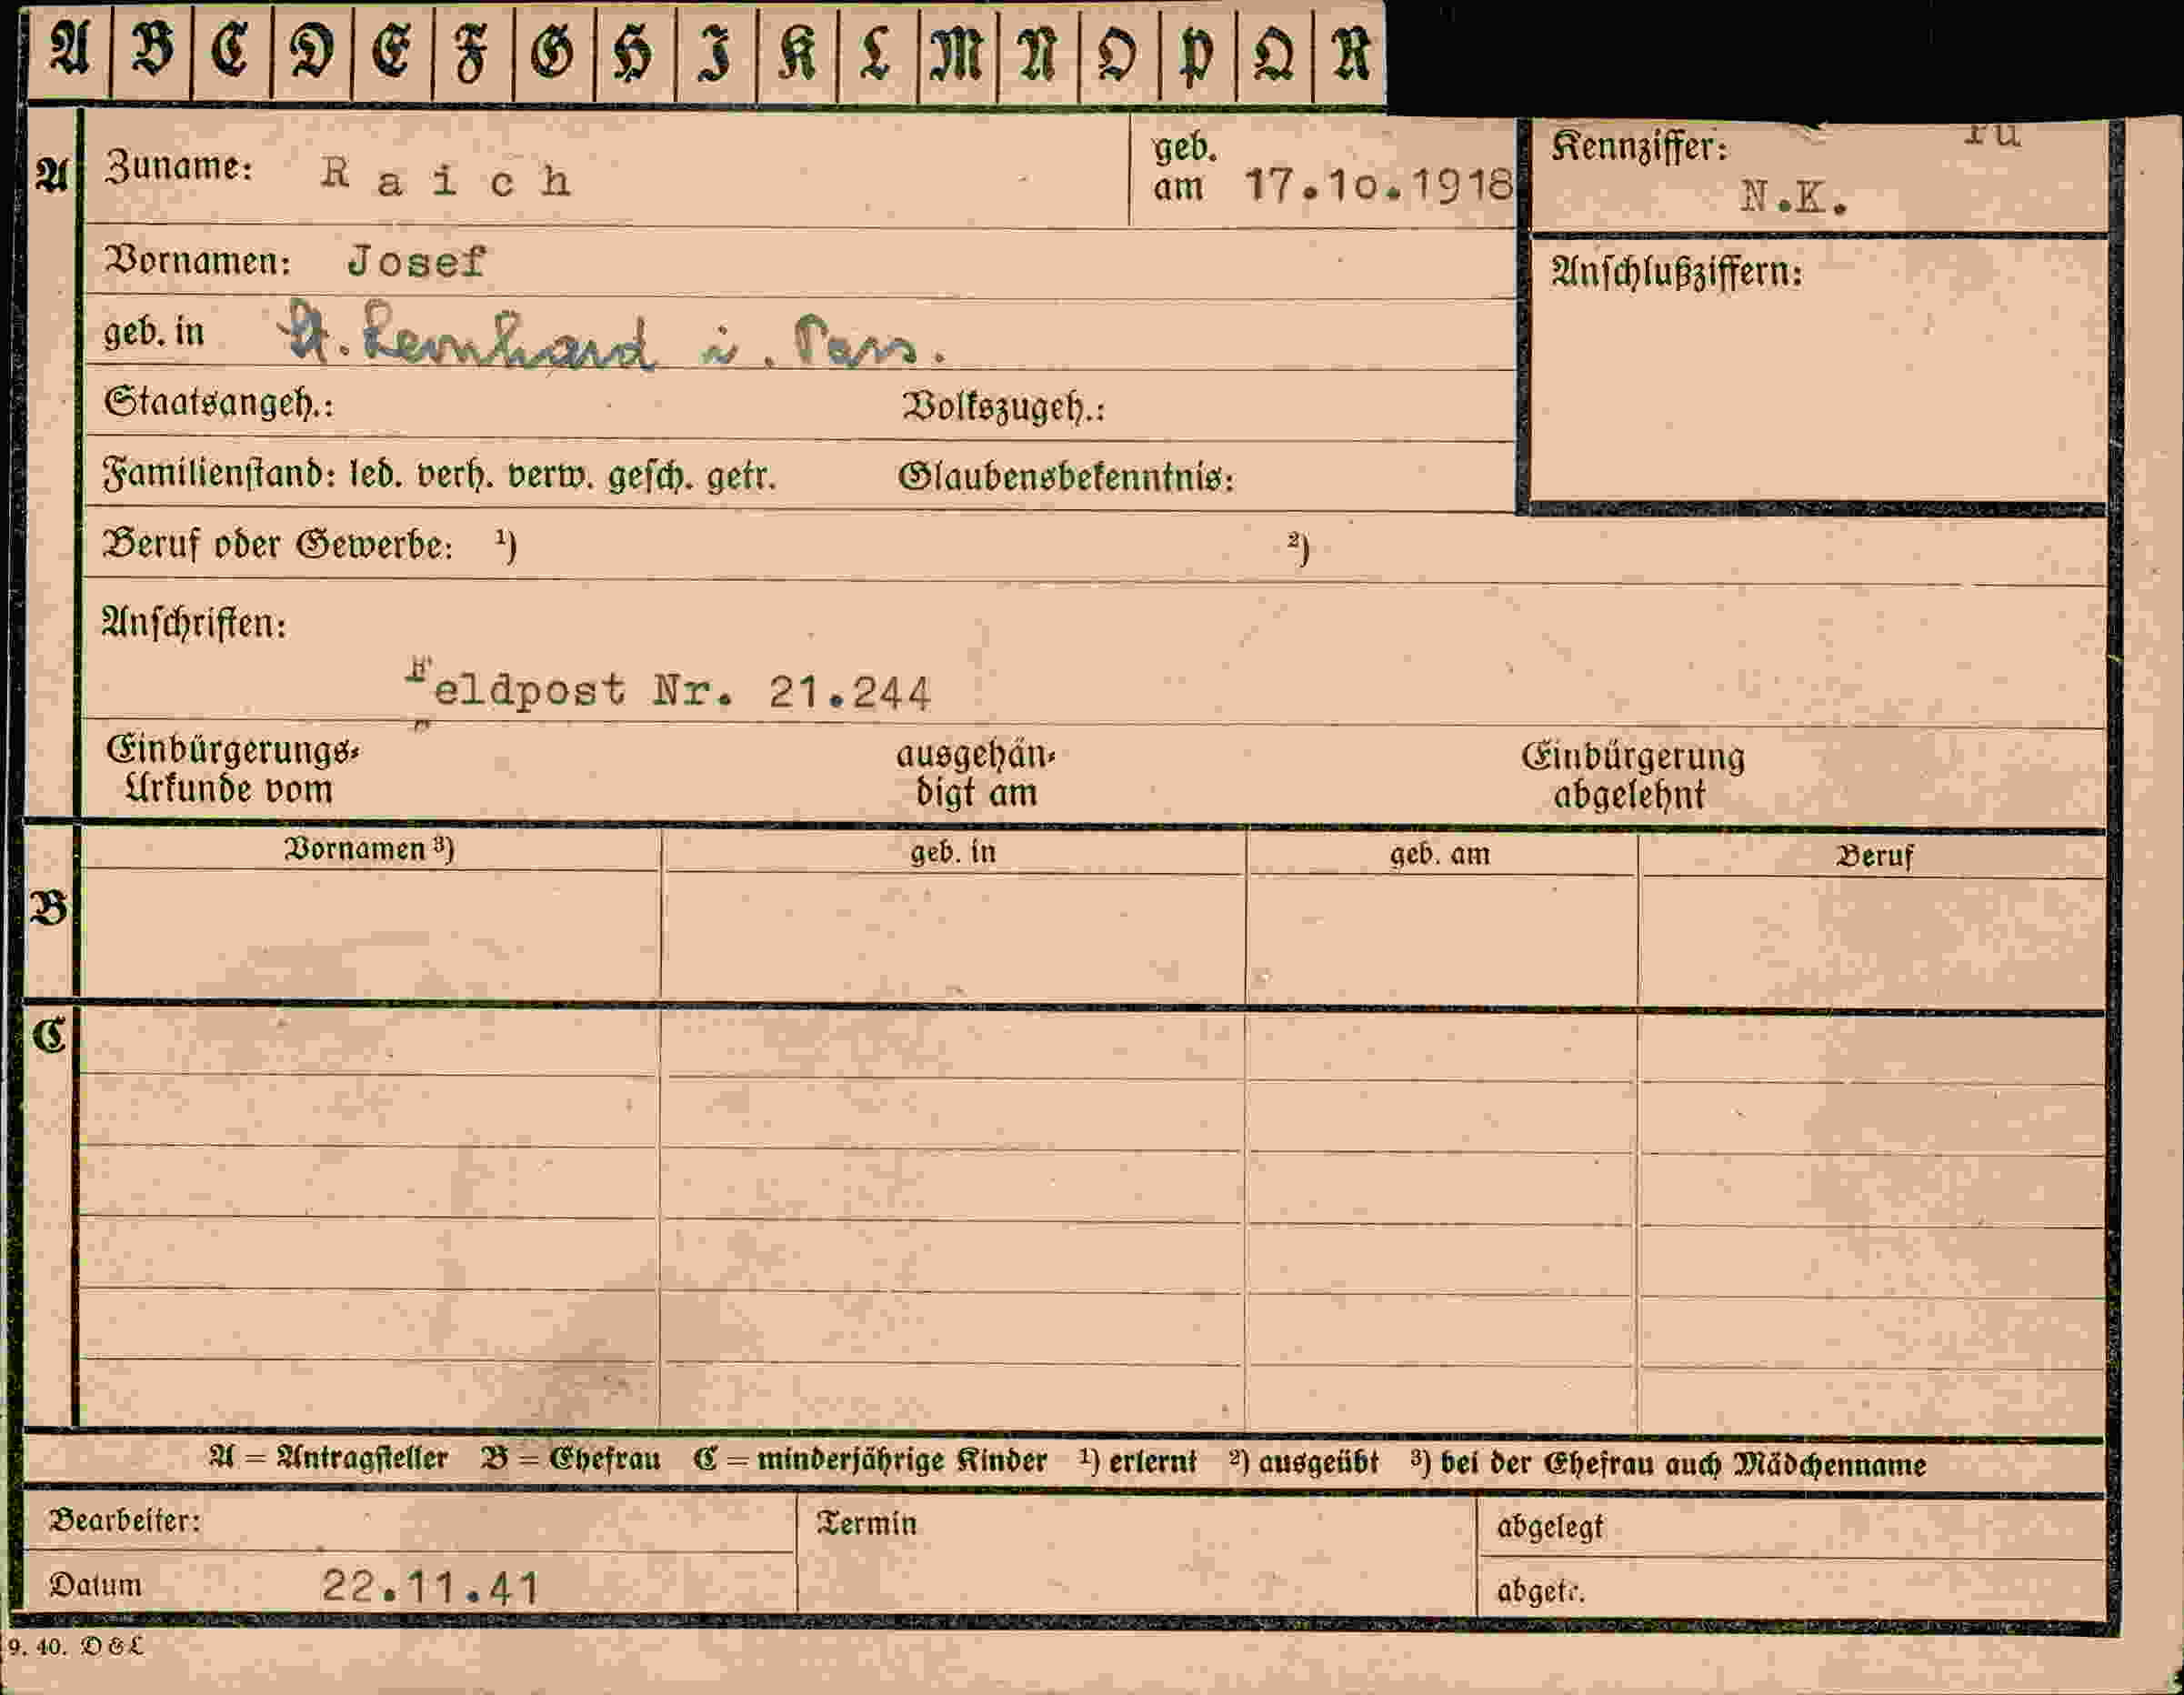 A B C D E F G H I K L M N O P Q R
A Zuname: Raich geb. am 17.10.1918
Kennziffer: N.K.
Vornamen: Josef
Anschlußziffern:
geb. in St. Leonhard i. Pass.
Staatsangeh.: Volkszugeh.:
Familienstand: led. verh. verw. gesch. getr. Glaubensbekenntnis:
Beruf oder Gewerbe: ¹) ²)
Anschriften:
Feldpost Nr. 21.244
Einbürgerungs- ausgehän- Einbürgerung
Urkunde vom digt am abgelehnt
Vornamen ³) geb. in geb. am Beruf
B
C
A = Antragsteller B = Ehefrau C = minderjährige Kinder ¹) erlernt ²) ausgeübt ³) bei der Ehefrau auch Mädchenname
Bearbeiter: Termin abgelegt
Datum 22.11.41 abgetr.
9. 40. D & L